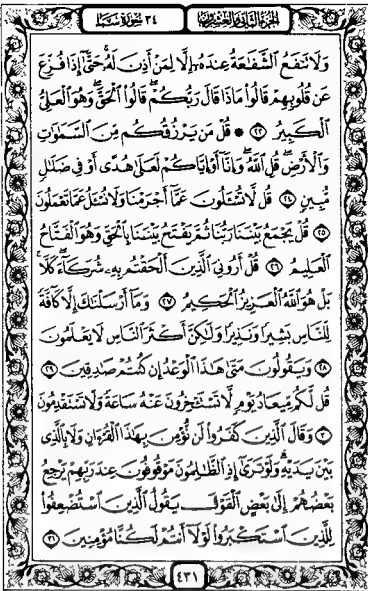 الجزء الثاني والعشرون
٣٤ سورة سبأ
وَلَا تَنفَعُ ٱلشَّفَٰعَةُ عِندَهُۥٓ إِلَّا لِمَنْ أَذِنَ لَهُۥ حَتَّىٰٓ إِذَا فُزِّعَ
عَن قُلُوبِهِمْ قَالُوا۟ مَاذَا قَالَ رَبُّكُمْ ۖ قَالُوا۟ ٱلْحَقَّ ۖ وَهُوَ ٱلْعَلِىُّ
ٱلْكَبِيرُ ٢٣ ۞ قُلْ مَن يَرْزُقُكُم مِّنَ ٱلسَّمَٰوَٰتِ
وَٱلْأَرْضِ ۖ قُلِ ٱللَّهُ ۖ وَإِنَّآ أَوْ إِيَّاكُمْ لَعَلَىٰ هُدًى أَوْ فِى ضَلَٰلٍ
مُّبِينٍ ٢٤ قُل لَّا تُسْـَٔلُونَ عَمَّآ أَجْرَمْنَا وَلَا نُسْـَٔلُ عَمَّا تَعْمَلُونَ
٢٥ قُلْ يَجْمَعُ بَيْنَنَا رَبُّنَا ثُمَّ يَفْتَحُ بَيْنَنَا بِٱلْحَقِّ وَهُوَ ٱلْفَتَّاحُ
ٱلْعَلِيمُ ٢٦ قُلْ أَرُونِىَ ٱلَّذِينَ أَلْحَقْتُم بِهِۦ شُرَكَآءَ ۖ كَلَّا ۚ
بَلْ هُوَ ٱللَّهُ ٱلْعَزِيزُ ٱلْحَكِيمُ ٢٧ وَمَآ أَرْسَلْنَٰكَ إِلَّا كَآفَّةً
لِّلنَّاسِ بَشِيرًا وَنَذِيرًا وَلَٰكِنَّ أَكْثَرَ ٱلنَّاسِ لَا يَعْلَمُونَ
٢٨ وَيَقُولُونَ مَتَىٰ هَٰذَا ٱلْوَعْدُ إِن كُنتُمْ صَٰدِقِينَ ٢٩
قُل لَّكُم مِّيعَادُ يَوْمٍ لَّا تَسْتَـْٔخِرُونَ عَنْهُ سَاعَةً وَلَا تَسْتَقْدِمُونَ
٣٠ وَقَالَ ٱلَّذِينَ كَفَرُوا۟ لَن نُّؤْمِنَ بِهَٰذَا ٱلْقُرْءَانِ وَلَا بِٱلَّذِى
بَيْنَ يَدَيْهِ ۗ وَلَوْ تَرَىٰٓ إِذِ ٱلظَّٰلِمُونَ مَوْقُوفُونَ عِندَ رَبِّهِمْ يَرْجِعُ
بَعْضُهُمْ إِلَىٰ بَعْضٍ ٱلْقَوْلَ يَقُولُ ٱلَّذِينَ ٱسْتُضْعِفُوا۟
لِلَّذِينَ ٱسْتَكْبَرُوا۟ لَوْلَآ أَنتُمْ لَكُنَّا مُؤْمِنِينَ ٣١
٤٣١